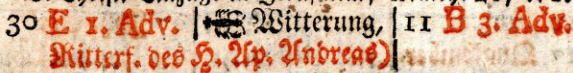 30 E 1. Adv. | Witterung, | 11 B 3. Adv.
Ritterf. des H. Ap. Andreas)